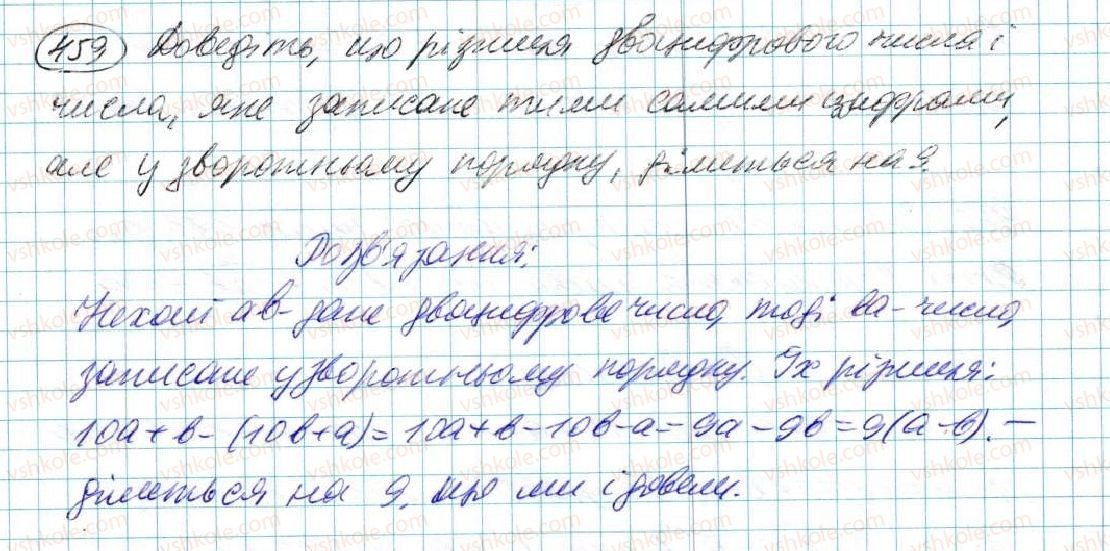 459 Доведіть, що різниця двоцифрового числа і
числа, яке записане тими самими цифрами,
але у зворотньому порядку, ділиться на 9.
Розв'язання:
Нехай ав - дане двоцифрове число, тоді ва - число,
записане у зворотньому порядку. Їх різниця:
10а + в - (10в + а) = 10а + в - 10в - а = 9а - 9в = 9(а - в). —
ділиться на 9, що ми і довели.